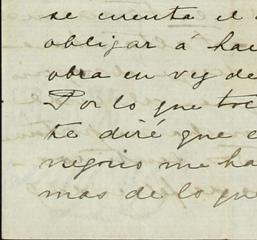 se cuenta el
obligar á hac
obra en vez de
Por lo que toc
te diré que e
negocio me ha
mas de lo que